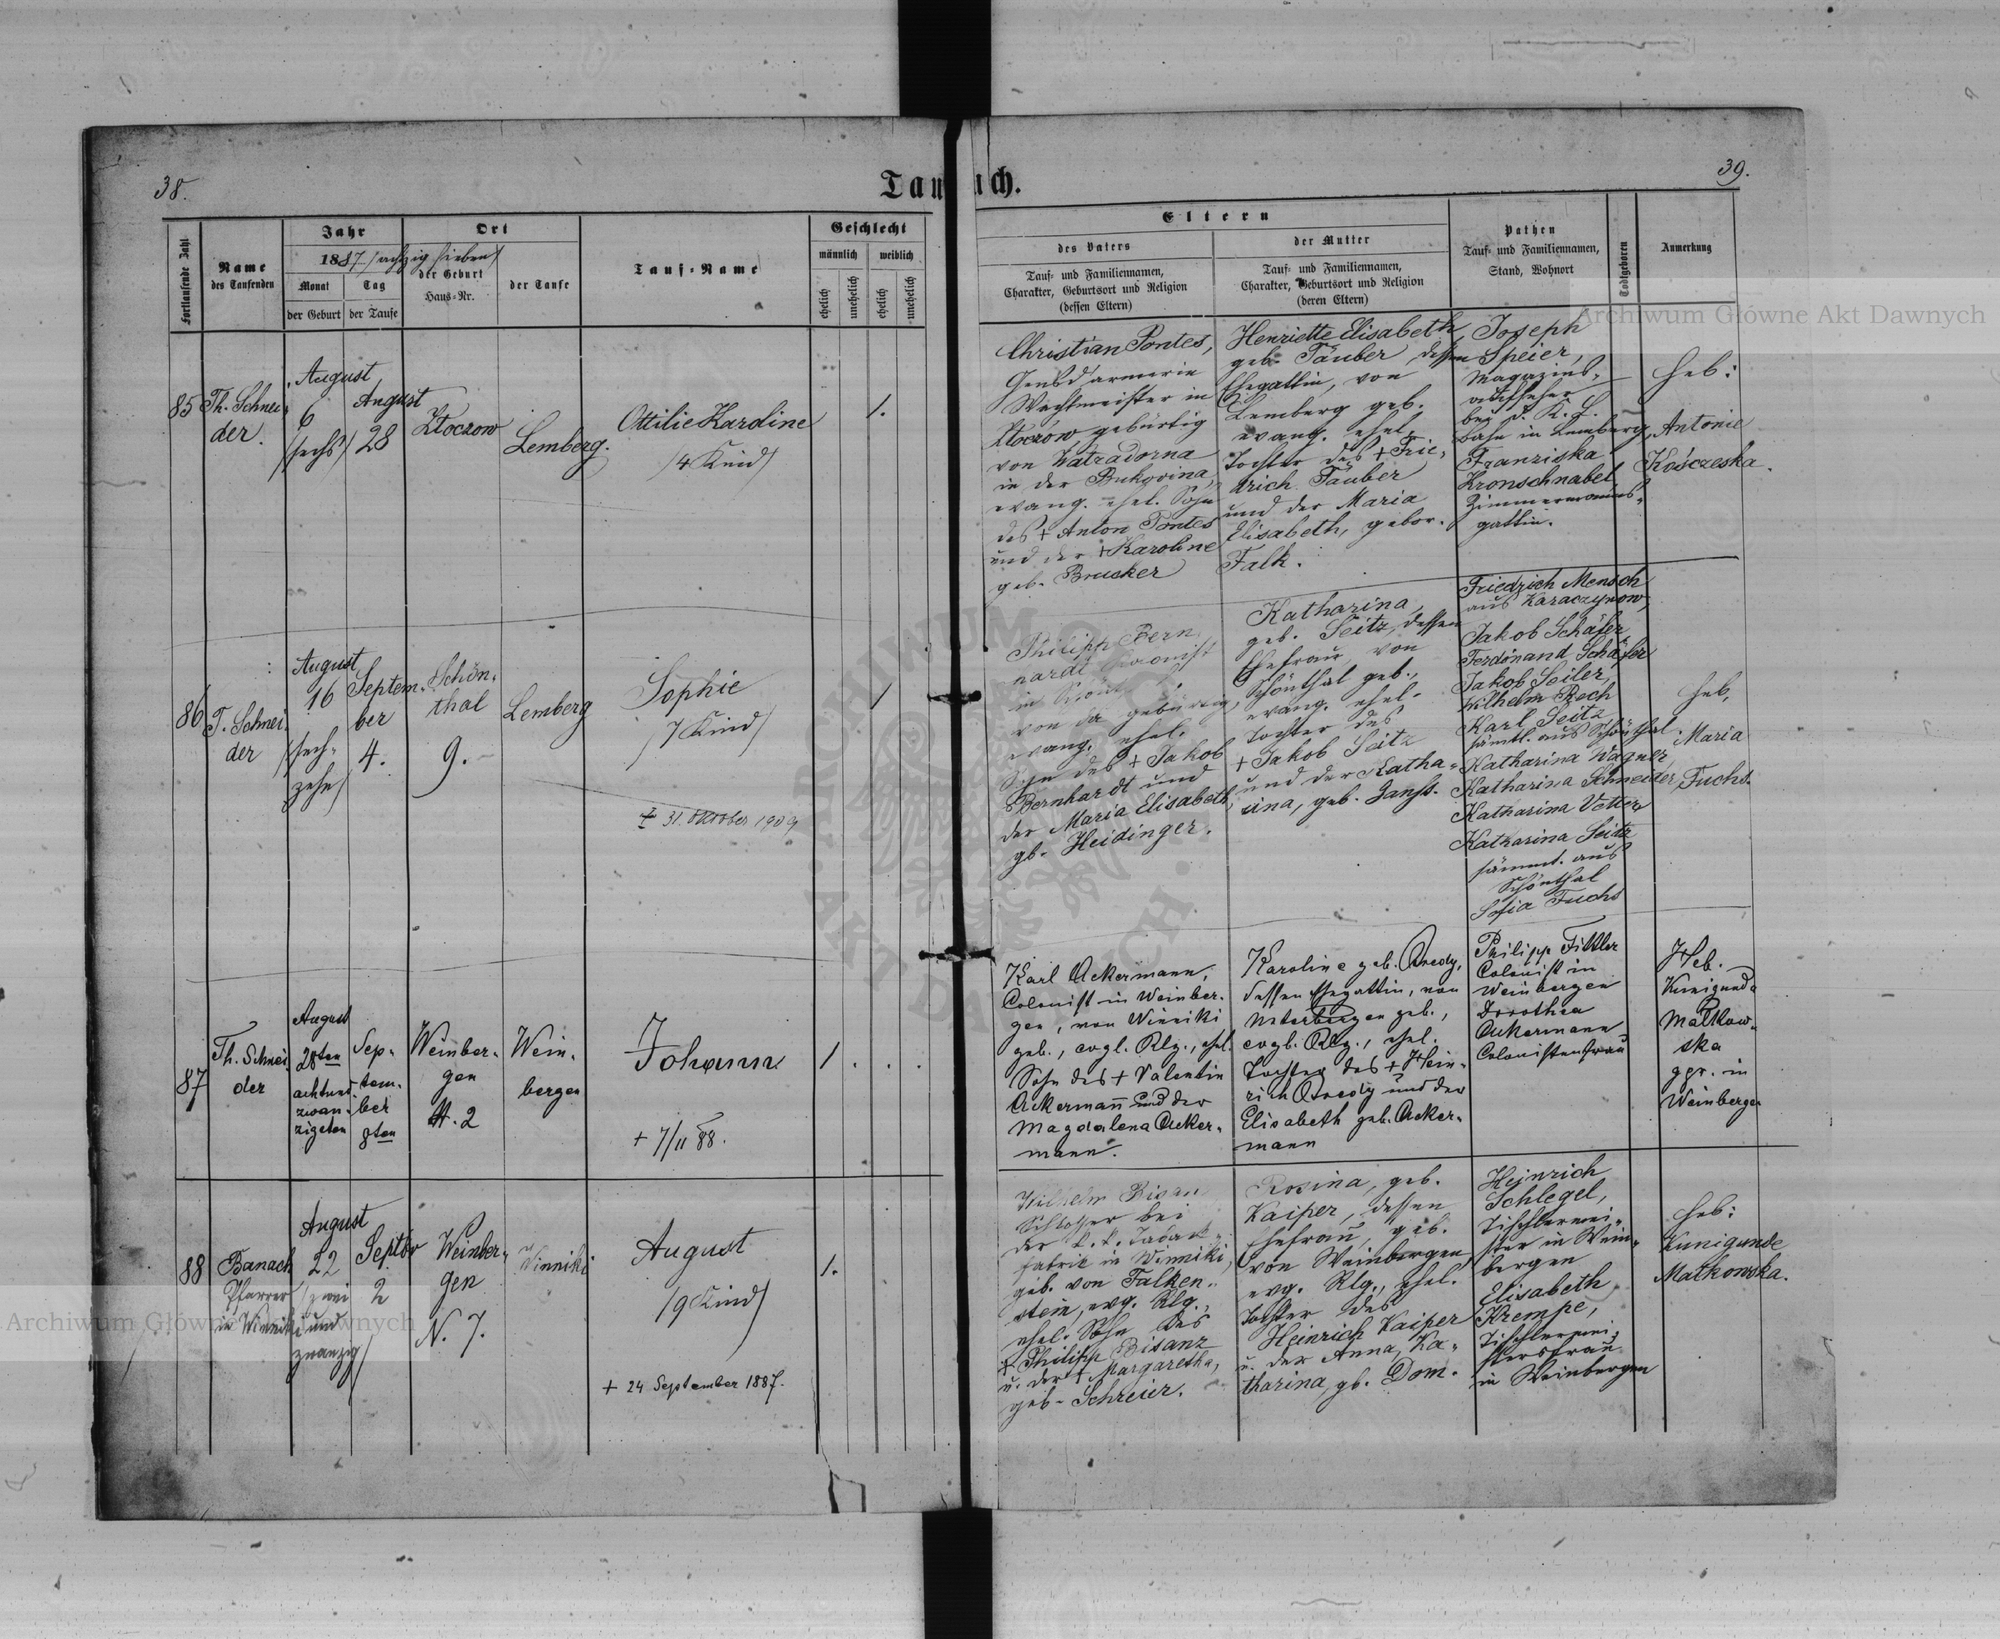 38.
39.
Taufbuch.
Fortlaufende Zahl
Name
des Taufenden
Jahr
1887 /achzig sieben/
Monat
Tag
der Geburt
der Taufe
Ort
der Geburt
Haus-Nr.
der Taufe
Tauf-Name
Geschlecht
männlich
weiblich
ehelich
unehelich
ehelich
unehelich
Eltern
des Vaters
Tauf- und Familiennamen,
Charakter, Geburtsort und Religion
(dessen Eltern)
der Mutter
Tauf- und Familiennamen,
Charakter, Geburtsort und Religion
(deren Eltern)
Pathen
Tauf- und Familiennamen,
Stand, Wohnort
Todtgeboren
Anmerkung
85
Th. Schnei-
der.
August
6
/sechs/
August
28
Złoczow
Lemberg.
Ottilie Karoline
/4 Kind/
1.
Christian Pontes,
Gensd'armerie
Wachtmeister in
Złoczów gebürtig
von Watradorna
in der Bukovina,
evang. ehel. Sohn
des + Anton Pontes
und der + Karoline
geb. Brucker
Henriette Elisabeth,
geb. Täuber, dessen
Ehegattin, von
Lemberg geb.
evang. ehel.
Tochter des + Frie-
drich Täuber
und der Maria
Elisabeth, gebor.
Falk.
Joseph
Speier,
Magazins-
aufseher
bei d. K. L.
Bahn in Lemberg,
Franziska
Kronschnabel
Zimmermanns-
gattin.
Heb:
Antonie
Kośczeska.
86
T. Schnei-
der
August
16
/sech-
zehn/
Septem-
ber
4.
Schön-
thal
9.
Lemberg
Sophie
/7 Kind/
+ 31. Oktober 1909
1
Philipp Bern-
hardt, Colonist
in
von da gebürtig,
evang. ehel.
Sohn des + Jakob
Bernhardt und
der Maria Elisabeth
gb. Heidinger.
Katharina,
geb. Seitz, dessen
Ehefrau von
Schönthal geb.,
evang. ehel.
Tochter des
+ Jakob Seitz
und der Katha-
rina, geb.
Friedrich Mensch
aus Karaczynow,
Jakob Schäfer
Ferdinand Schäfer
Jakob Seiler,
Wilhelm Rech
Karl Seitz
sämtl. aus Schönthal.
Katharina Wagner,
Katharina Schneider,
Katharina Vetter
Katharina Seitz
sämmt. aus
Schönthal
Sofia Fuchs
Heb.
Maria
Fuchs.
87
Th. Schnei
der
August
28ten
achtund
zwan-
zigsten
Sep-
tem-
ber
8ten
Weinber-
gen
H. 2
Wein-
bergen
Johann
+ 7/11 88.
1
Karl Ackermann,
Colonist in Weinber-
gen, von Winniki
geb., evgl. Rlg., ehel.
Sohn des + Valentin
Ackermann und der
Magdalena Acker-
mann.
Karoline geb.
dessen Ehegattin, von
Unterbergen geb.,
evgl. Rlg., ehel.
Tochter des + Hein-
rich und der
Elisabeth geb. Acker-
mann
Philipp Fittler
Colonist in
Weinbergen
Dorothea
Ackermann
Colonistenfrau
Heb.
Kunigunda
Malkow-
ska
gpr. in
Weinbergen
88
Banach
Pfarrer
in Winniki
August
22
/zwei
und
zwanzig/
Septbr
2
Weinber-
gen
N. 7.
Winniki
August
/9 Kind/
+ 24 September 1887.
1.
Wilhelm Bisanz
Schlosser bei
der k. k. Tabak-
fabrik in Winniki,
geb. von Falken-
stein, evg. Rlg.,
ehel. Sohn des
+ Philipp Bisanz
u. der + Margaretha,
geb. Schreier.
Rosina, geb.
Kaiper, dessen
Ehefrau, geb.
von Weinbergen
evg. Rlg., ehel.
Tochter des
Heinrich Kaiper
u. der Anna Ka-
tharina, gb. Dom.
Heinrich
Schlegel,
Tischlermei-
ster in Wein-
bergen
Elisabeth
Krempe,
Tischlermei-
stersfrau
in Weinbergen
Heb:
Kunigunde
Malkowska.
Archiwum Główne Akt Dawnych
Archiwum Główne Akt Dawnych